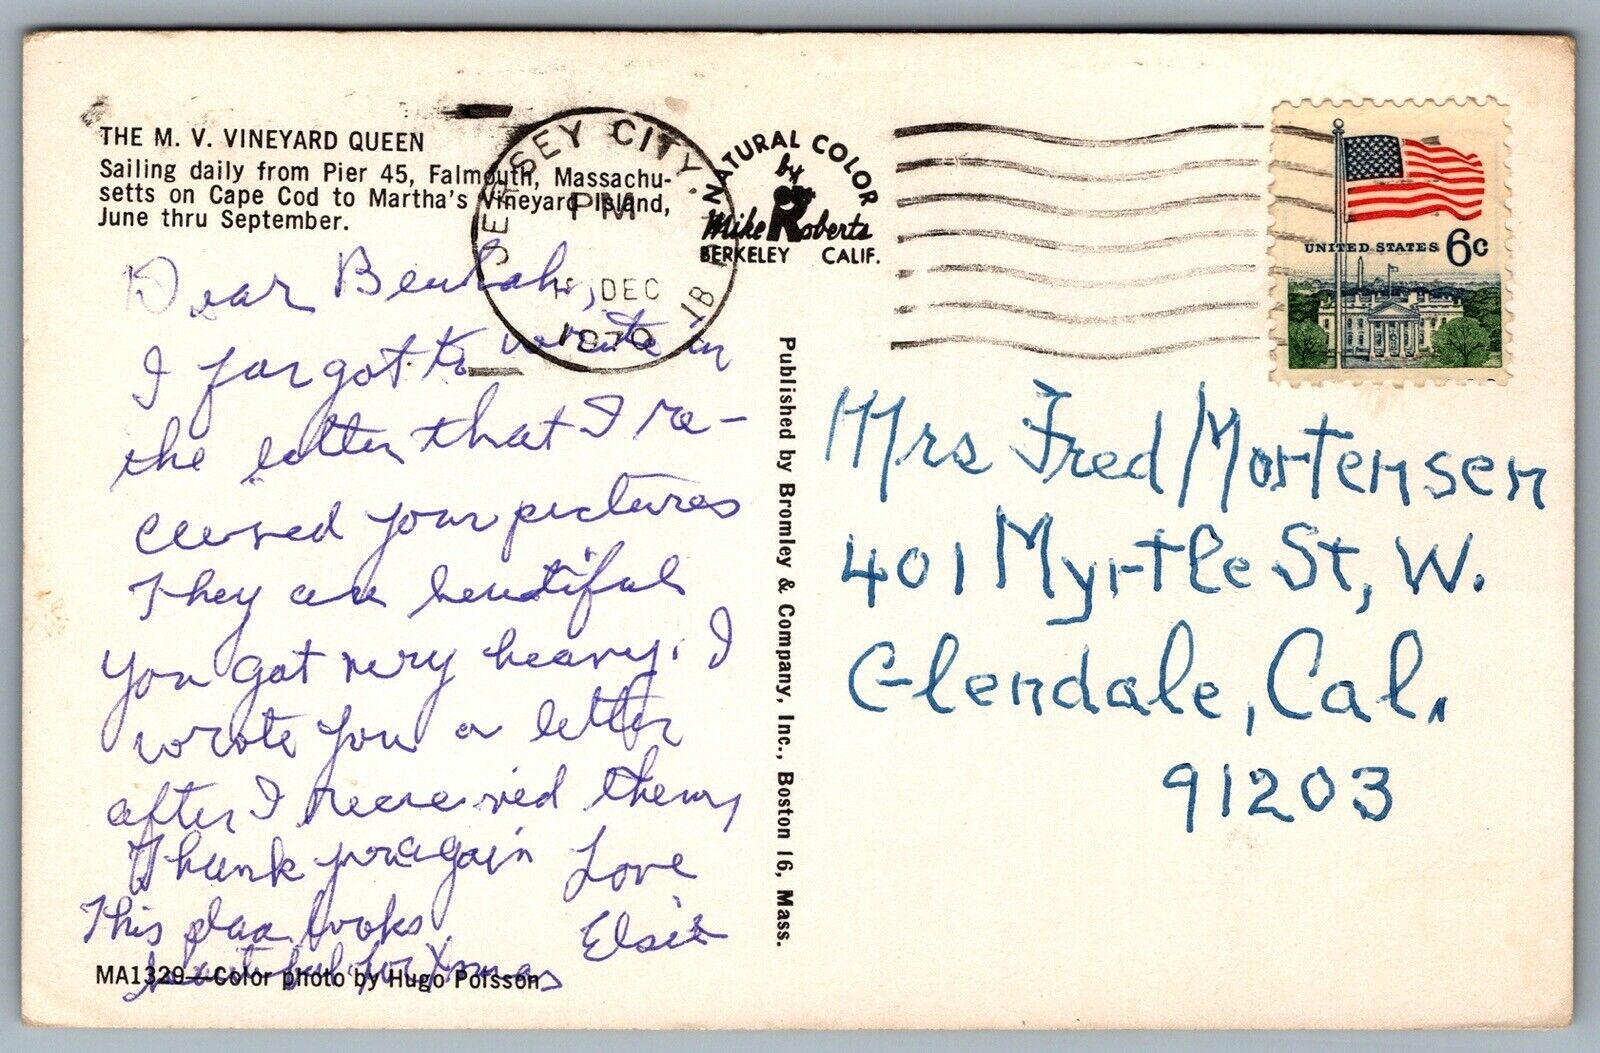 THE M. V. VINEYARD QUEEN
Sailing daily from Pier 45, Falmouth, Massachu-
setts on Cape Cod to Martha's Vineyard Island,
June thru September.
JERSEY CITY, N
PM
DEC
1970
1B
NATURAL COLOR
by
Mike Roberts
BERKELEY CALIF.
UNITED STATES 6c
Dear Beulah,
I forgot to write in
the letter that I re-
ceived your pictures
They are beautiful
You got very heavy. I
wrote you a letter
after I received them,
Thank you again Love
This place looks Elsie
beautiful for Xmas
MA1329—Color photo by Hugo Poisson
Published by Bromley & Company, Inc., Boston 16, Mass.
Mrs Fred Mortensen
401 Myrtle St, W.
Glendale, Cal.
91203